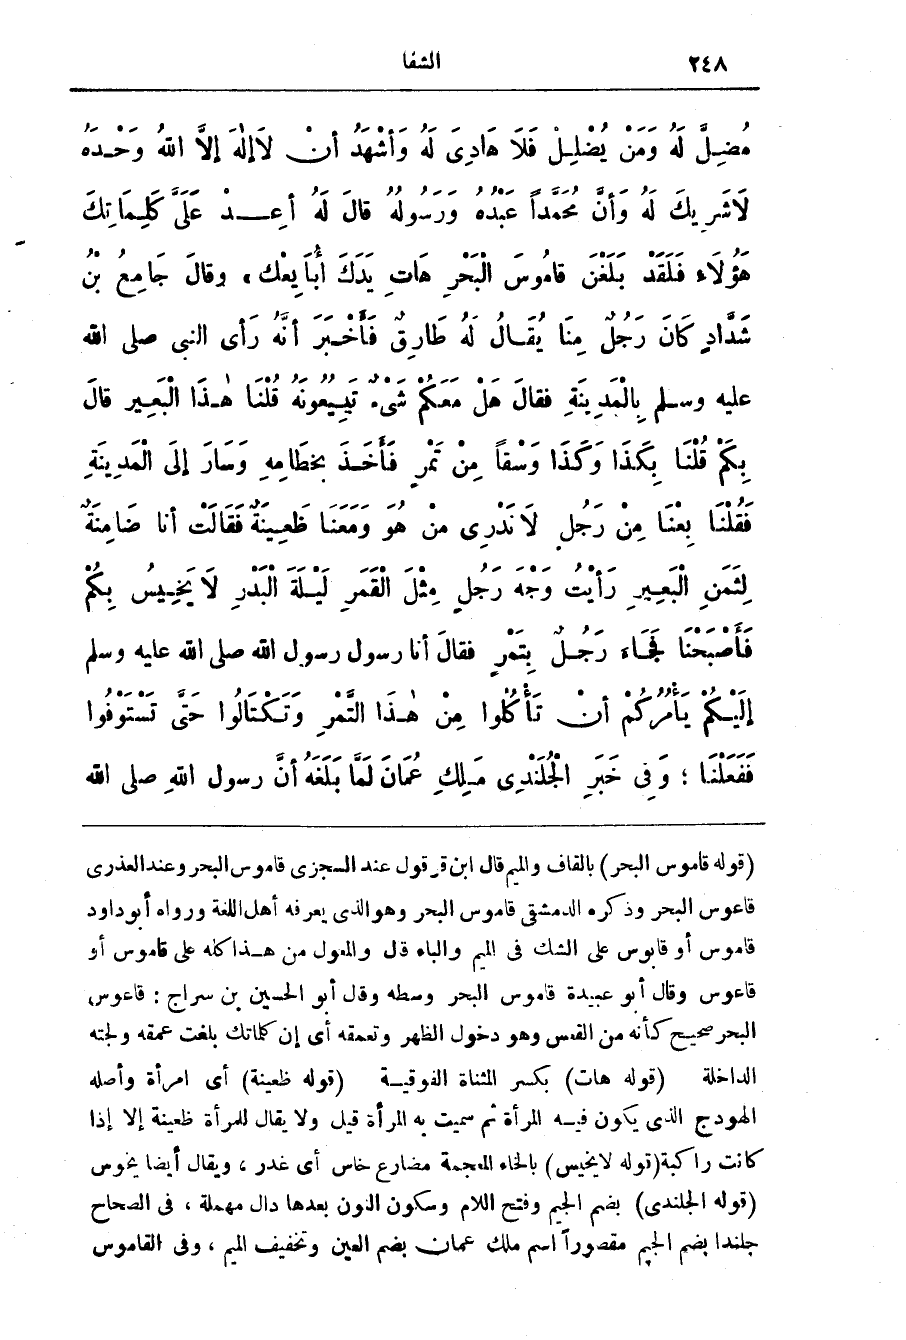 ٢٤٨ الشفا
مُضِلَّ لَهُ وَمَنْ يُضْلِلْ فَلَا هَادِىَ لَهُ وَأَشْهَدُ أَنْ لَا إِلٰهَ إِلَّا اللهُ وَحْدَهُ
لَا شَرِيكَ لَهُ وَأَنَّ مُحَمَّداً عَبْدُهُ وَرَسُولُهُ قالَ لَهُ أَعِدْ عَلَىَّ كَلِمَاتِكَ
هَؤُلَاءِ فَلَقَدْ بَلَغْنَ قامُوسَ الْبَحْرِ هَاتِ يَدَكَ أُبَايِعْكَ ، وقالَ جَامِعُ بْنُ
شَدَّادٍ كَانَ رَجُلٌ مِنَا يُقَالُ لَهُ طَارِقٌ فَأَخْبَرَ أنَّهُ رَأى النبى صلى الله
عليه وسلم بِالْمَدِينَةِ فقالَ هَلْ مَعَكُمْ شَىْءٌ تَبِيعُونَهُ قُلْنَا هٰذَا الْبَعِيرِ قالَ
بِكَمْ قُلْنَا بِكَذَا وَكَذَا وَسْقاً مِنْ تَمْرٍ فَأَخَذَ بِخِطَامِهِ وَسَارَ إلَى الْمَدِينَةِ
فَقُلْنَا بِعْنَا مِنْ رَجُلٍ لَا نَدْرِى مَنْ هُوَ وَمَعَنَا ظَعِينَةٌ فَقَالَتْ أنا ضَامِنَةٌ
لِثَمَنِ الْبَعِيرِ رَأَيْتُ وَجْهَ رَجُلٍ مِثْلَ الْقَمَرِ لَيْلَةَ الْبَدْرِ لَا يَخِيسُ بِكُمْ
فَأَصْبَحْنَا فَجَاءَ رَجُلٌ بِتَمْرٍ فقالَ أنا رسول رسول الله صلى الله عليه وسلم
إِلَيْكُمْ يَأْمُرُكُمْ أنْ تَأْكُلُوا مِنْ هٰذَا التَّمْرِ وَتَكْتَالُوا حَتَّى تَسْتَوْفُوا
فَفَعَلْنَا ؛ وَفى خَبَرِ الْجُلَنْدِى مَلِكِ عُمَانَ لَمَّا بَلَغَهُ أنَّ رسول اللهِ صلى الله
(قوله قاموس البحر) بالقاف والميم قال ابن قرقول عند السجزى قاموس البحر وعند العذرى
قاعوس البحر وذكره الدمشقى قاموس البحر وهو الذى يعرفه أهل اللغة ورواه أبو داود
قاموس أو قابوس على الشك فى الميم والباء قال والمعول من هذا كله على قاموس أو
قاعوس وقال أبو عبيدة قاموس البحر وسطه وقال أبو الحسين بن سراج : قاعوس
البحر صحيح كأنه من القعس وهو دخول الظهر وتعمقه أى إن كلماتك بلغت عمقه ولجته
الداخلة (قوله هات) بكسر المثناة الفوقية (قوله ظعينة) أى امرأة وأصله
الهودج الذى يكون فيه المرأة ثم سميت به المرأة قيل ولا يقال للمرأة ظعينة إلا إذا
كانت راكبة (قوله لايخيس) بالخاء المعجمة مضارع خاس أى غدر ، ويقال أيضا يخوس
(قوله الجلندى) بضم الجيم وفتح اللام وسكون النون بعدها دال مهملة ، فى الصحاح
جلندا بضم الجيم مقصوراً اسم ملك عمان بضم العين وتخفيف الميم ، وفى القاموس